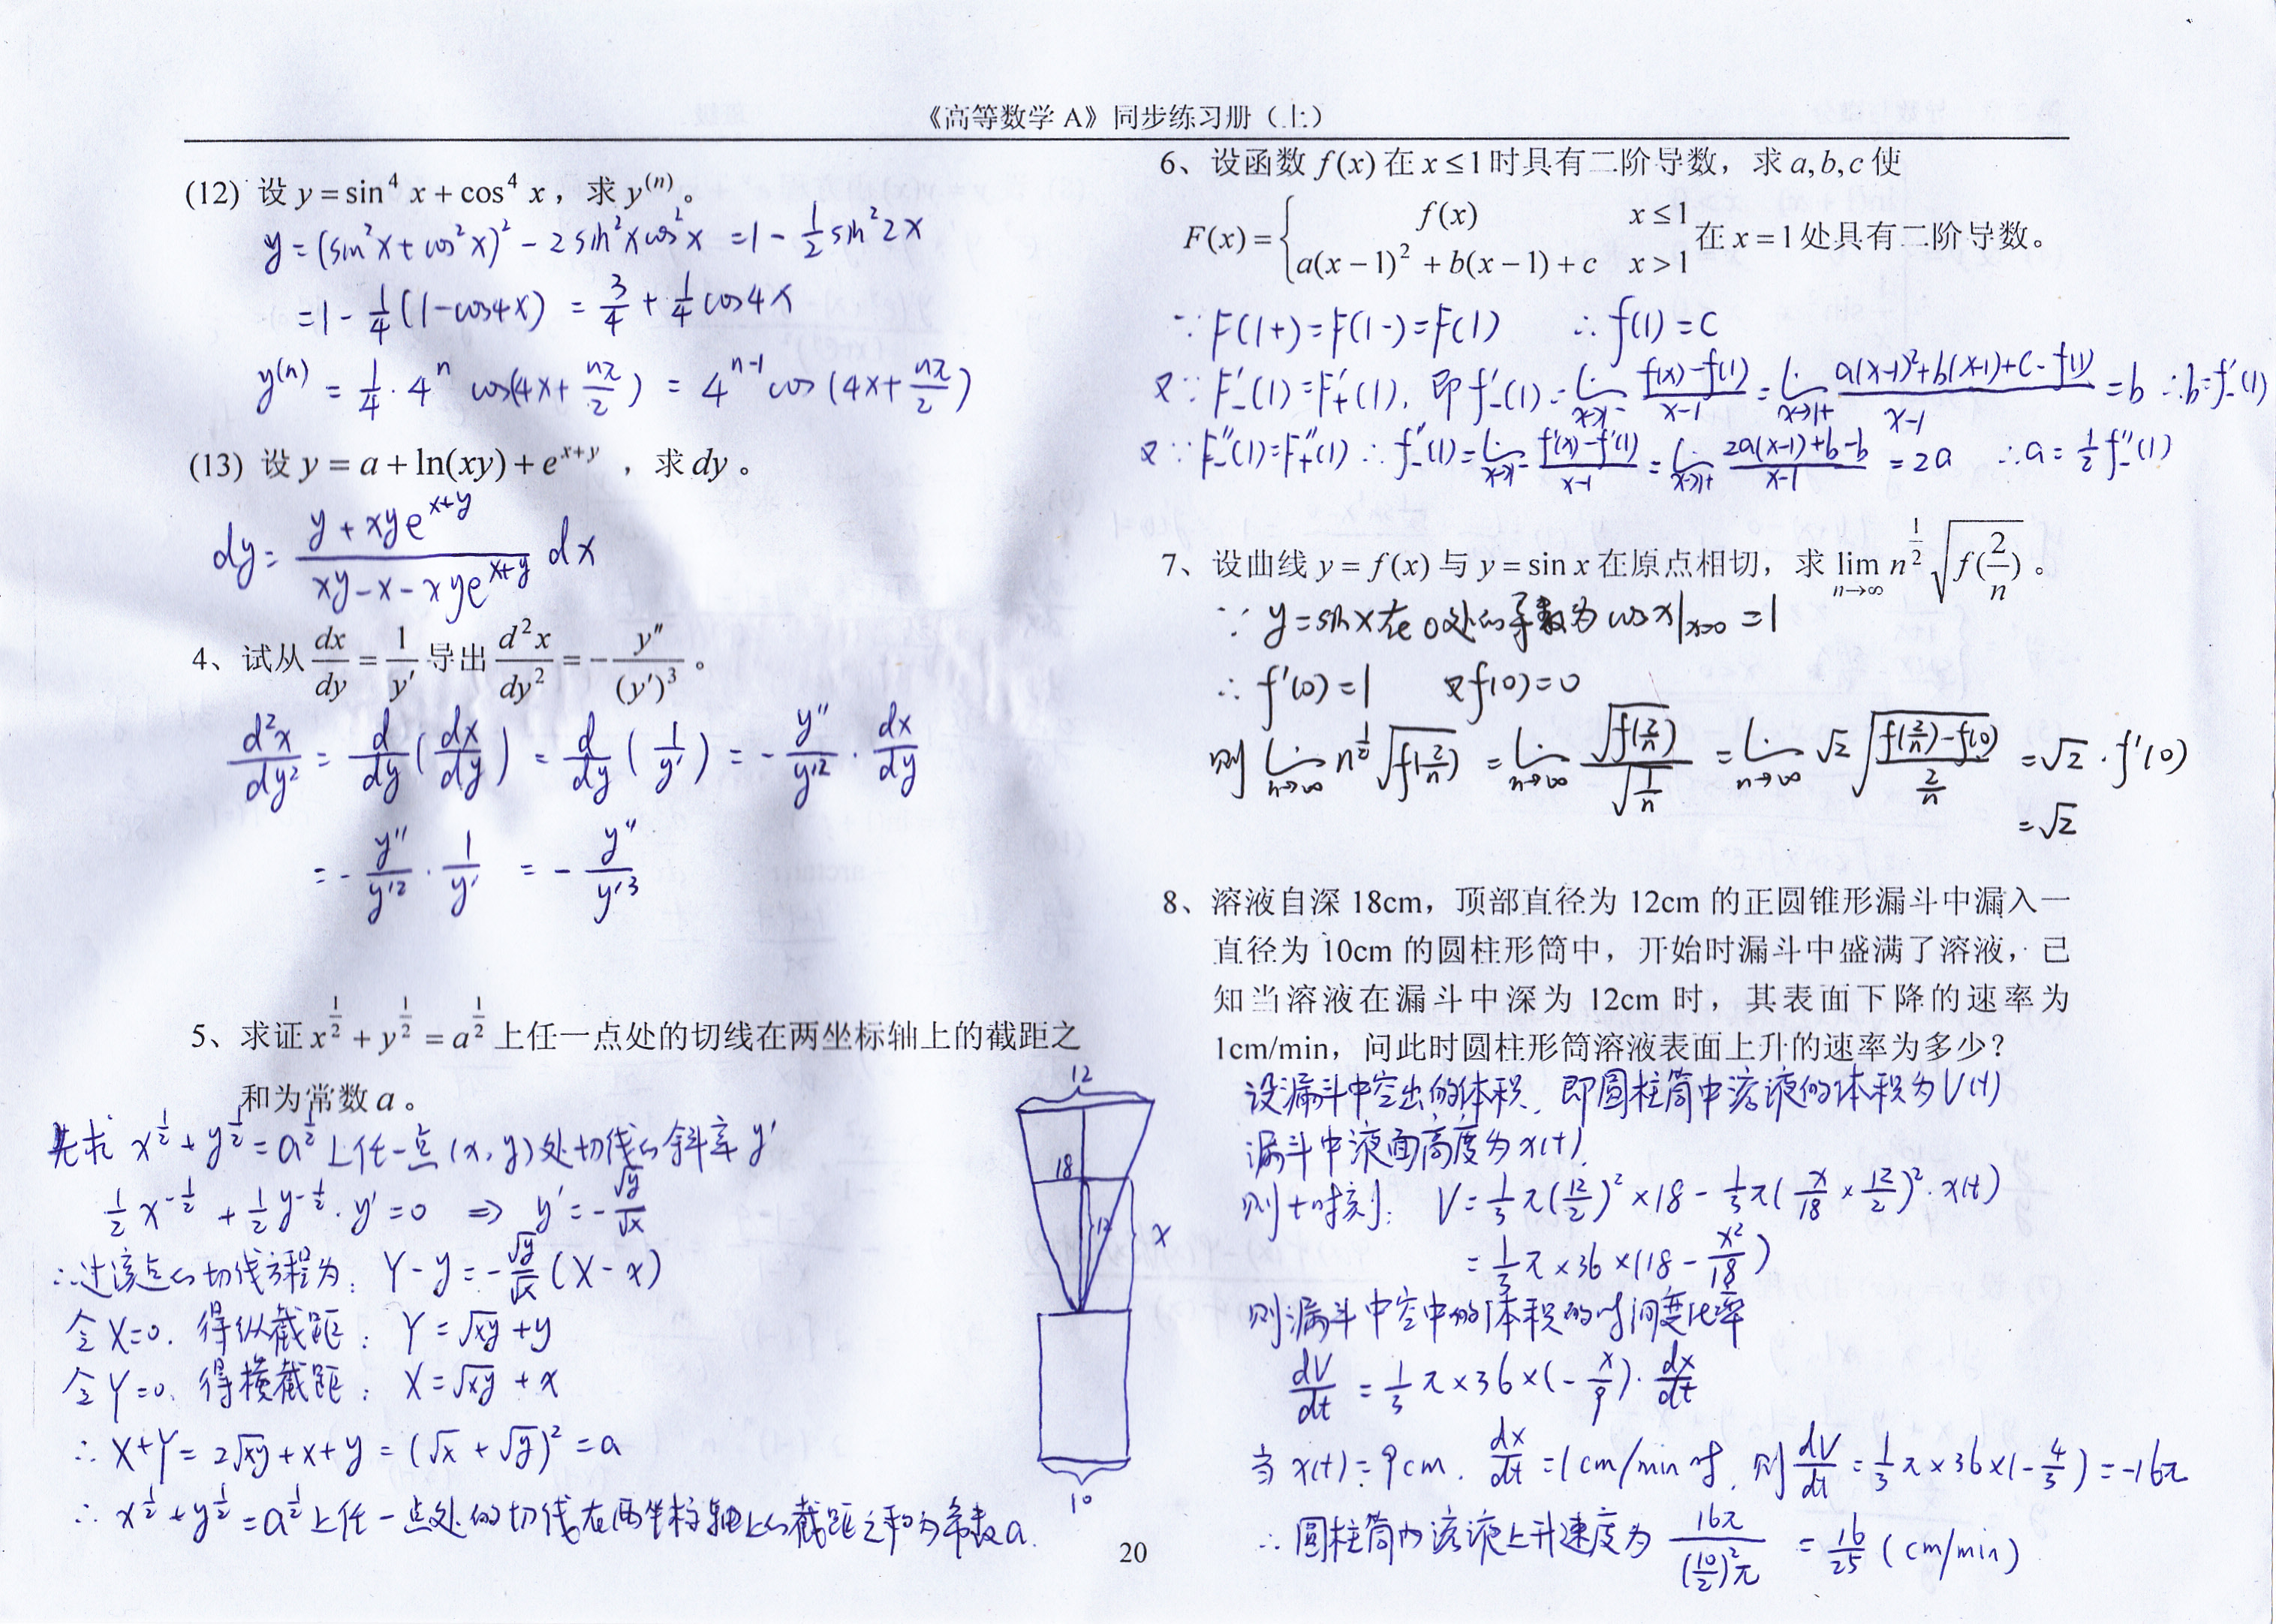 《高等数学 A》同步练习册（上）
(12) 设 y = sin⁴ x + cos⁴ x，求 y⁽ⁿ⁾。
y = (sin²x + cos²x)² − 2sin²x cos²x = 1 − 1/2 sin²2x
= 1 − 1/4 (1−cos4x) = 3/4 + 1/4 cos4x
y⁽ⁿ⁾ = 1/4 · 4ⁿ cos(4x + nπ/2) = 4ⁿ⁻¹ cos(4x + nπ/2)
(13) 设 y = a + ln(xy) + e^(x+y)，求 dy。
dy = (y + xye^(x+y))/(xy − x − xye^(x+y)) dx
4、试从 dx/dy = 1/y′ 导出 d²x/dy² = − y″/(y′)³。
d²x/dy² = d/dy (dx/dy) = d/dy (1/y′) = − y″/y′² · dx/dy
= − y″/y′² · 1/y′ = − y″/y′³
5、求证 x^(1/2) + y^(1/2) = a^(1/2) 上任一点处的切线在两坐标轴上的截距之
和为常数 a。
先求 x^(1/2) + y^(1/2) = a^(1/2) 上任一点 (x, y) 处切线的斜率 y′
1/2 x^(−1/2) + 1/2 y^(−1/2) · y′ = 0 ⇒ y′ = − √y/√x
∴过该点的切线方程为: Y − y = − √y/√x (X − x)
令 X=0. 得纵截距: Y = √xy + y
令 Y=0. 得横截距: X = √xy + x
∴ X+Y = 2√xy + x + y = (√x + √y)² = a
∴ x^(1/2) + y^(1/2) = a^(1/2) 上任一点处的切线在两坐标轴上的截距之和为常数 a.
12
18
12
x
10
6、设函数 f(x) 在 x ≤ 1 时具有二阶导数，求 a, b, c 使
F(x) = { f(x) x ≤ 1
a(x−1)² + b(x−1) + c x > 1 在 x = 1 处具有二阶导数。
∵ F(1+) = F(1−) = F(1) ∴ f(1) = c
又∵ F′₋(1) = F′₊(1), 即 f′₋(1) = lim x→1− (f(x)−f(1))/(x−1) = lim x→1+ (a(x−1)²+b(x−1)+c−f(1))/(x−1) = b ∴b=f′₋(1)
又∵ F″₋(1)=F″₊(1) ∴ f″₋(1) = lim x→1− (f′(x)−f′(1))/(x−1) = lim x→1+ (2a(x−1)+b−b)/(x−1) = 2a ∴a = 1/2 f″₋(1)
7、设曲线 y = f(x) 与 y = sin x 在原点相切，求 lim n→∞ n^(1/2) √f(2/n)。
∵ y = sinx 在 0 处的导数为 cosx|x=0 = 1
∴ f′(0) = 1 又f(0) = 0
则 lim n→∞ n^(1/2) √f(2/n) = lim n→∞ √f(2/n)/√(1/n) = lim n→∞ √2 √((f(2/n)−f(0))/(2/n)) = √2 · f′(0)
= √2
8、溶液自深 18cm，顶部直径为 12cm 的正圆锥形漏斗中漏入一
直径为 10cm 的圆柱形筒中，开始时漏斗中盛满了溶液，已
知当溶液在漏斗中深为 12cm 时，其表面下降的速率为
1cm/min，问此时圆柱形筒溶液表面上升的速率为多少？
设漏斗中空出的体积, 即圆柱筒中溶液的体积为 V(t)
漏斗中液面高度为 x(t).
则 t 时刻: V = 1/3 π(12/2)² × 18 − 1/3 π(x/18 × 12/2)² · x(t)
= 1/3 π × 36 × (18 − x²/18)
则漏斗中空中的体积的时间变化率
dV/dt = 1/3 π × 36 × (− x/9) · dx/dt
当 x(t) = 9cm. dx/dt = 1cm/min 时, 则 dV/dt = 1/3 π × 36 × (− 4/3) = −16π
∴ 圆柱筒内溶液上升速度为 16π/((10/2)²π) = 16/25 (cm/min)
20